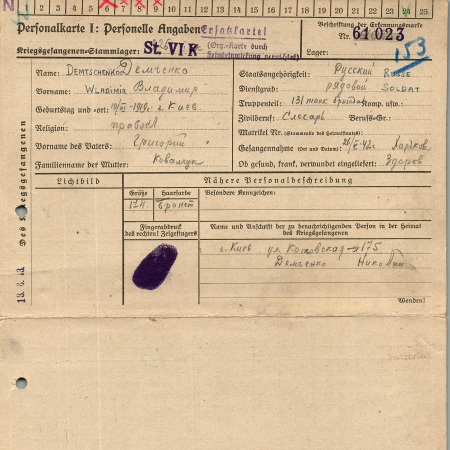 N 2 3 4 5 6 7 8 9 10 11 12 13 14 15 16 17 18 19 20 21 22 23 24 25
Personalkarte I: Personelle Angaben
Ersatzkartei
Kriegsgefangenen-Stammlager: St. VI K
(Org.-Karte durch
Feindeinwirkung vernichtet)
Beschriftung der Erkennungsmarke
Nr. 61023
Lager:
153
Des Kriegsgefangenen
Name: DEMTSCHENKO Демченко
Vorname: WLADIMIR Владимир
Geburtstag und -ort: 1919г. г Киев
Religion: правосл
Vorname des Vaters: Григорий
Familienname der Mutter: Ковалчук
Staatsangehörigkeit: Русский RUSSE
Dienstgrad: рядовой SOLDAT
Truppenteil: 131 танк бригада Komp. usw.:
Zivilberuf: Слесарь Berufs-Gr.:
Matrikel Nr. (Stammrolle des Heimatstaates):
Gefangennahme (Ort und Datum): 42г Харков
Ob gesund, krank, verwundet eingeliefert: Здоров
Lichtbild
Nähere Personalbeschreibung
Größe
Haarfarbe
Besondere Kennzeichen:
174.
Fingerabdruck
des rechten! Zeigefingers
Name und Anschrift der zu benachrichtigenden Person in der Heimat
des Kriegsgefangenen
г. Киев ул. 175
Демченко Николай
Wenden!